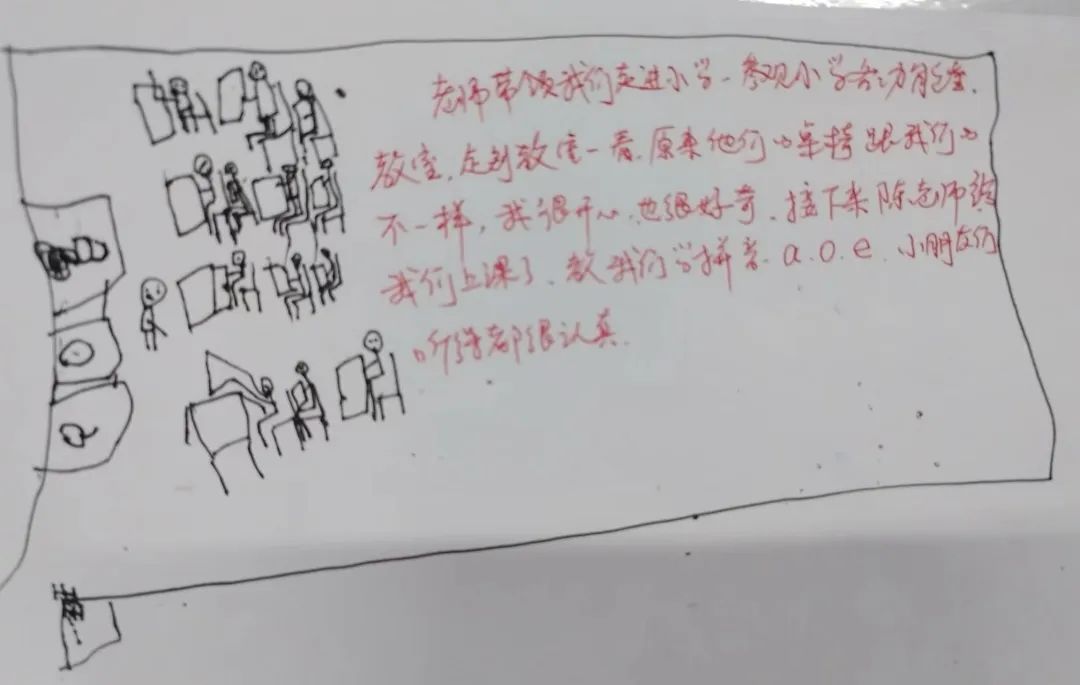 老师带领我们走进小学、参观小学各功能室、
教室、走到教室一看、原来他们的桌椅跟我们的
不一样，我很开心、也很好奇、接下来陈老师给
我们上课了、教我们学拼音、a、o、e、小朋友们
听得都很认真、